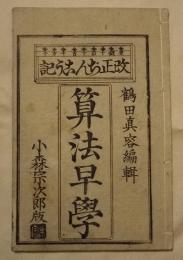 改正ぢんこう記
鶴田真容編輯
算法早學
小森宗次郎版